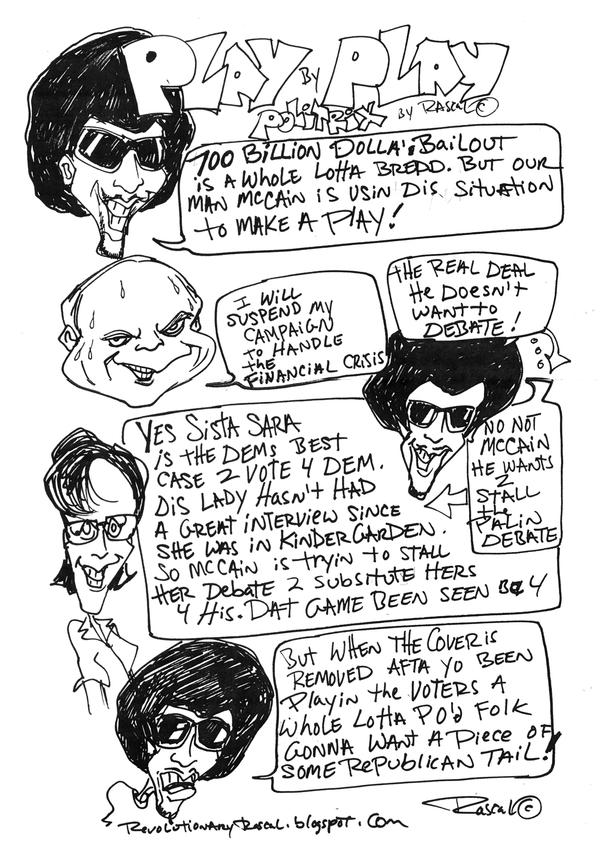 PLAY BY PLAY
POLITRIX BY RASCAL ©
700 BILLION DOLLA' BAILOUT
IS A WHOLE LOTTA BREDD. BUT OUR
MAN MCCAIN IS USIN DIS SITUATION
TO MAKE A PLAY!
I WILL
SUSPEND MY
CAMPAIGN
TO HANDLE
THE
FINANCIAL CRISIS
THE REAL DEAL
HE DOESN'T
WANT TO
DEBATE!
NO NOT
MCCAIN
HE WANTS
2
STALL
THE
PALIN
DEBATE
YES SISTA SARA
IS THE DEMS BEST
CASE 2 VOTE 4 DEM.
DIS LADY HASN'T HAD
A GREAT INTERVIEW SINCE
SHE WAS IN KINDERGARDEN.
SO MCCAIN IS TRYIN TO STALL
HER DEBATE 2 SUBSTITUTE HERS
4 HIS. DAT GAME BEEN SEEN B 4
BUT WHEN THE COVER IS
REMOVED AFTA YO BEEN
PLAYIN THE VOTERS A
WHOLE LOTTA PO'D FOLK
GONNA WANT A PIECE OF
SOME REPUBLICAN TAIL!
RASCAL ©
REVOLUTIONARYRASCAL.BLOGSPOT.COM